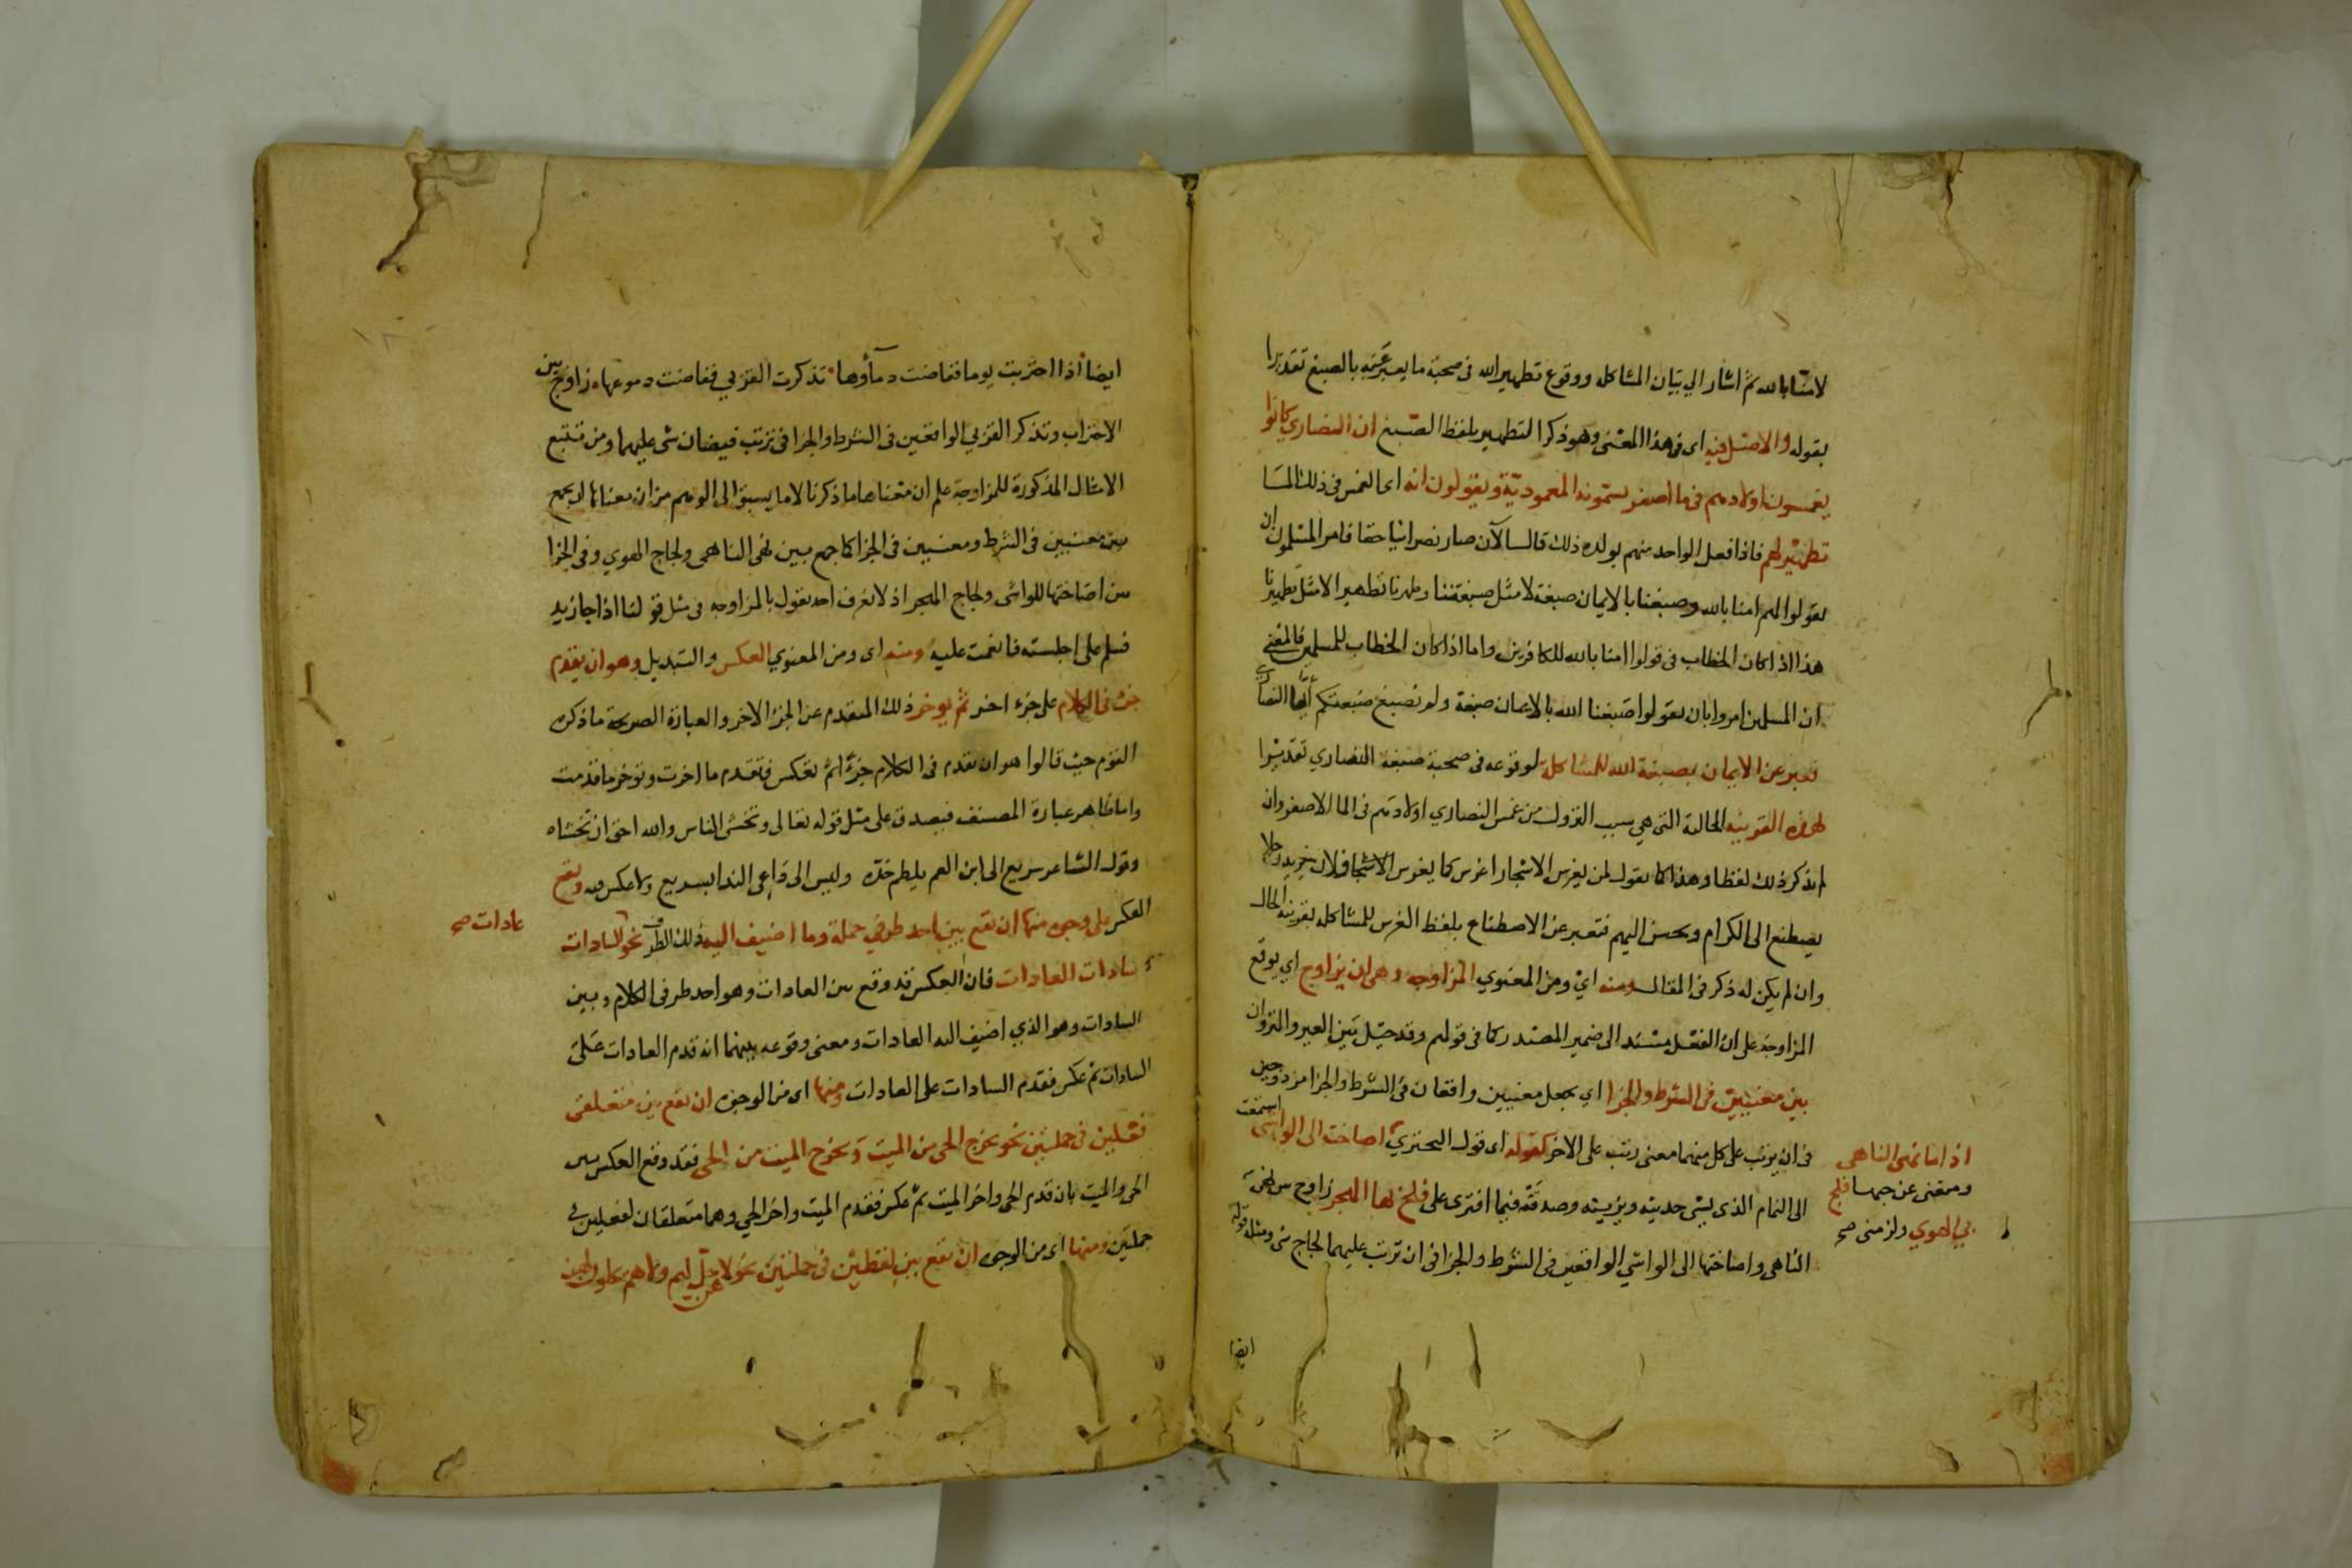 لامنا بالله ثم اشار الي بيان المشاكله ووقوع تطهير الله في صحبة ما يعبر عنه بالصبغ تقديرا
بقوله والاصل فيه اى فى هذا المعنى وهو ذكر التطهير بلفظ الصبغ ان النصارى كانوا
يغمسون اولادهم فى ما اصفر يسمونه المعمودية ويقولون انه اى الغمس فى ذلك الما
تطهير لهم فاذا فعل الواحد منهم بولده ذلك قال الآن صار نصرانيا حقا فامر المسلمون ان
يقولوا لهم امنا بالله وصبغنا بالايمان صبغة لا مثل صبغتنا وطهرنا تطهيرا لا مثل تطهيرنا
هذا اذا كان الخطاب فى قولوا امنا بالله للكافرين واما اذا كان الخطاب للمسلمين فالمعنى
ان المسلمين امروا بان يقولوا صبغنا الله بالايمان صبغة ولم نصبغ صبغتكم ايها النصارى
فعبر عن الايمان بصبغة الله للمشاكلة لوقوعه فى صحبة صبغة النصاري تقديرا
لهذه القرينه الحالية التي هي سبب النزول من غمس النصاري اولادهم فى الما الاصفر وان
لم يذكر ذلك لفظا وهذا كما يقول لمن يغرس الاشجار اغرس كما يغرس الاشجار فلان يريد رجلا
يصطنع الى الكرام ويحسن اليهم فتعبر عن الاصطناع بلفظ الغرس للمشاكله بقرينة الحال
وان لم يكن له ذكر فى المقال ومنه اي ومن المعنوي المزاوجه وهى ان يزاوج اي يوقع
المزاوجة على ان الفعل مسند الى ضمير المصدر كما فى قولهم وقد حيل بين العير والنزوان
بين معنيين فى الشرط والجزا اي يجعل معنيين واقعان فى الشرط والجزا مزدوجين
فى ان يرتب على كل منهما معنى رتب على الاخر كقوله اى قول البحتري اصاخت الى الواشى
استمعت
اذا ما نهى الناهى
ومنعنى عن حبها فلج
بي الهوي ولزمنى صح
الى النمام الذى يشى حديثه ويزينه وصدقته فيما افترى على فلج بها الهجر زاوج بين نهى
الناهى واصاختها الى الواشي الواقعين فى الشرط والجزا فى ان ترتب عليهما لجاج شى ومثله قوله
ايضا
ايضا اذا احتربت يوما ففاضت دمآؤها تذكرت القربي ففاضت دموعها زاوج بين
الاحتراب وتذكر القربي الواقعين فى الشرط والجزا فى ترتب فيضان شى عليهما ومن تتبع
الامثال المذكورة للمزاوجة علم ان معناها ما ذكرنا لا ما يسبق الى الوهم من ان معناها ان يجمع
بين معنيين فى الشرط ومعنيين فى الجزا كما جمع بين نهى الناهى ولجاج الهوي وفى الجزا
بين اصاختها للواشى ولجاج الهجر اذ لا يعرف احد يقول بالمزاوجه فى مثل قولنا اذا جا زيد
فسلم على اجلسته فانعمت عليه ومنه اى ومن المعنوي العكس والتبديل وهو ان يقدم
جزء فى الكلام على جزء اخر ثم يوخر ذلك المتقدم عن الجزء الاخر والعبارة الصريحة ما ذكره
القوم حيث قالوا هو ان تقدم فى الكلام جزءً ثم تعكس فتقدم ما اخرت وتوخر ما قدمت
واما ظاهر عبارة المصنف فيصدق على مثل قوله تعالى وتخشى الناس والله احق ان تخشاه
وقول الشاعر سريع الى ابن العم يلطم خده وليس الى داعى الندا بسريع ولا عكس فيه ويقع
العكس على وجوه منها ان يقع بين احد طرفي جملة وما اضيف اليه ذلك الطرف نحو السادات
عادات صح
سادات العادات فان العكس قد وقع بين العادات وهو احد طرفى الكلام وبين
السادات وهو الذي اضيف اليه العادات ومعنى وقوعه بينهما انه قدم العادات على
السادات ثم عكس فقدم السادات على العادات ومنها اى من الوجوه ان يقع بين متعلقى
فعلين فى جملتين نحو يخرج الحى من الميت ويخرج الميت من الحى فقد وقع العكس بين
الحى والميت بان قدم الحى واخر الميت ثم عكس فقدم الميت واخر الحي وهما متعلقان لفعلين في
جملتين ومنها اى من الوجوه ان يقع بين لفظين فى جملتين نحو لا هن حل لهم ولا هم يحلون لهن